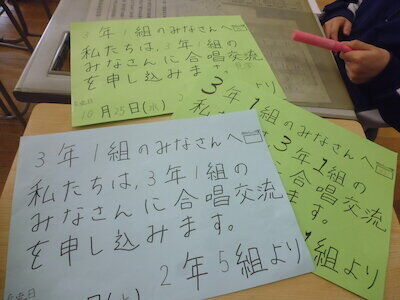 3年1組のみなさんへ
私たちは、3年1組の
みなさんに合唱交流
を申し込みます。
10月25日(水)
3年
より
3年1組のみなさんへ
私たちは、3年1組の
みなさんに合唱交流
を申し込みます。
2年5組より
1組
みなさんへ
3年1組の
合唱交流
ます。
組より